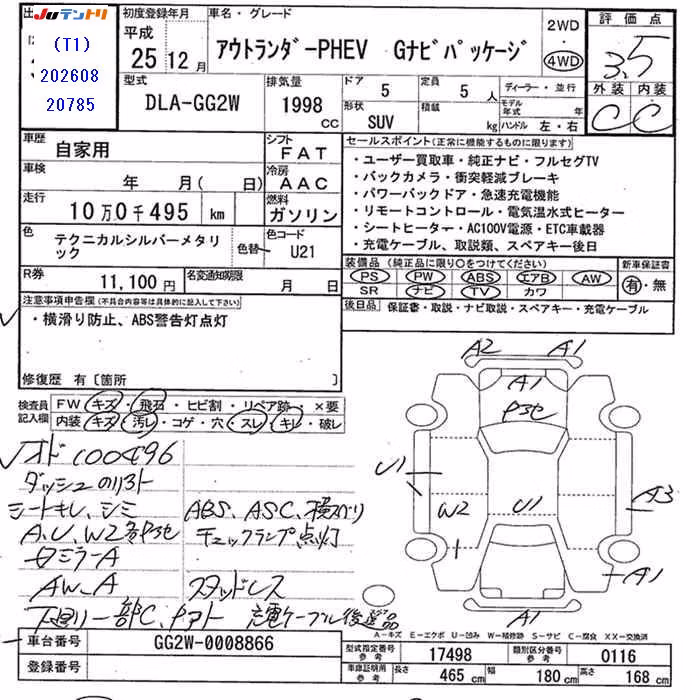 出
JUテントリ
(T1)
202608
20785
初度登録年月
平成
25 12 月
車名・グレード
アウトランダ-PHEV Gナビパッケージ
2WD
・
4WD
評価点
3.5
外装 内装
C C
型式
DLA-GG2W
排気量
1998
cc
ドア
5
定員
5 人
形状
SUV
積載
kg
ディーラー・並行
モデル年式 年
ハンドル 左・右
車歴
自家用
シフト
FAT
車検
年 月( 日)
冷房
AAC
走行
10万0千495 km
燃料
ガソリン
色
テクニカルシルバーメタリック
色替
色コード
U21
R券
11,100円
名変通知期限
月 日
セールスポイント(正常に機能するものに限ります)
・ユーザー買取車・純正ナビ・フルセグTV
・バックカメラ・衝突軽減ブレーキ
・パワーバックドア・急速充電機能
・リモートコントロール・電気温水式ヒーター
・シートヒーター・AC100V電源・ETC車載器
・充電ケーブル、取説類、スペアキー後日
装備品(純正品に限り○をつけてください)
PS PW ABS エアB AW
SR ナビ TV カワ
新車保証書
有・無
後日品 保証書・取説・ナビ取説・スペアキー・充電ケーブル
注意事項申告欄(不具合内容等は具体的に記入して下さい)
・横滑り防止、ABS警告灯点灯
修復歴 有〔箇所 〕
検査員記入欄
FW キズ・飛石・ヒビ割・リペア跡・×要
内装 キズ・汚レ・コゲ・穴・スレ・キレ・破レ
オド100496
ダッシュのリスト
シートキレ、シミ
A.U、W2各Pコセ
ABS、ASC、横スベリ
チェックランプ点灯
ミラーA
AW-A
スタッドレス
下廻り一部C、
充電ケーブル後送品
A2 A1
A1
Pコセ
U1
W2
U1
A3
A1
A1
A-キズ E-エクボ U-凹み W-補修跡 S-サビ C-腐食 XX-交換済
車台番号 GG2W-0008866
登録番号
型式指定番号 参考 17498
類別区分番号 参考 0116
車庫証明用 参考 長さ 465 cm 幅 180 cm 高さ 168 cm